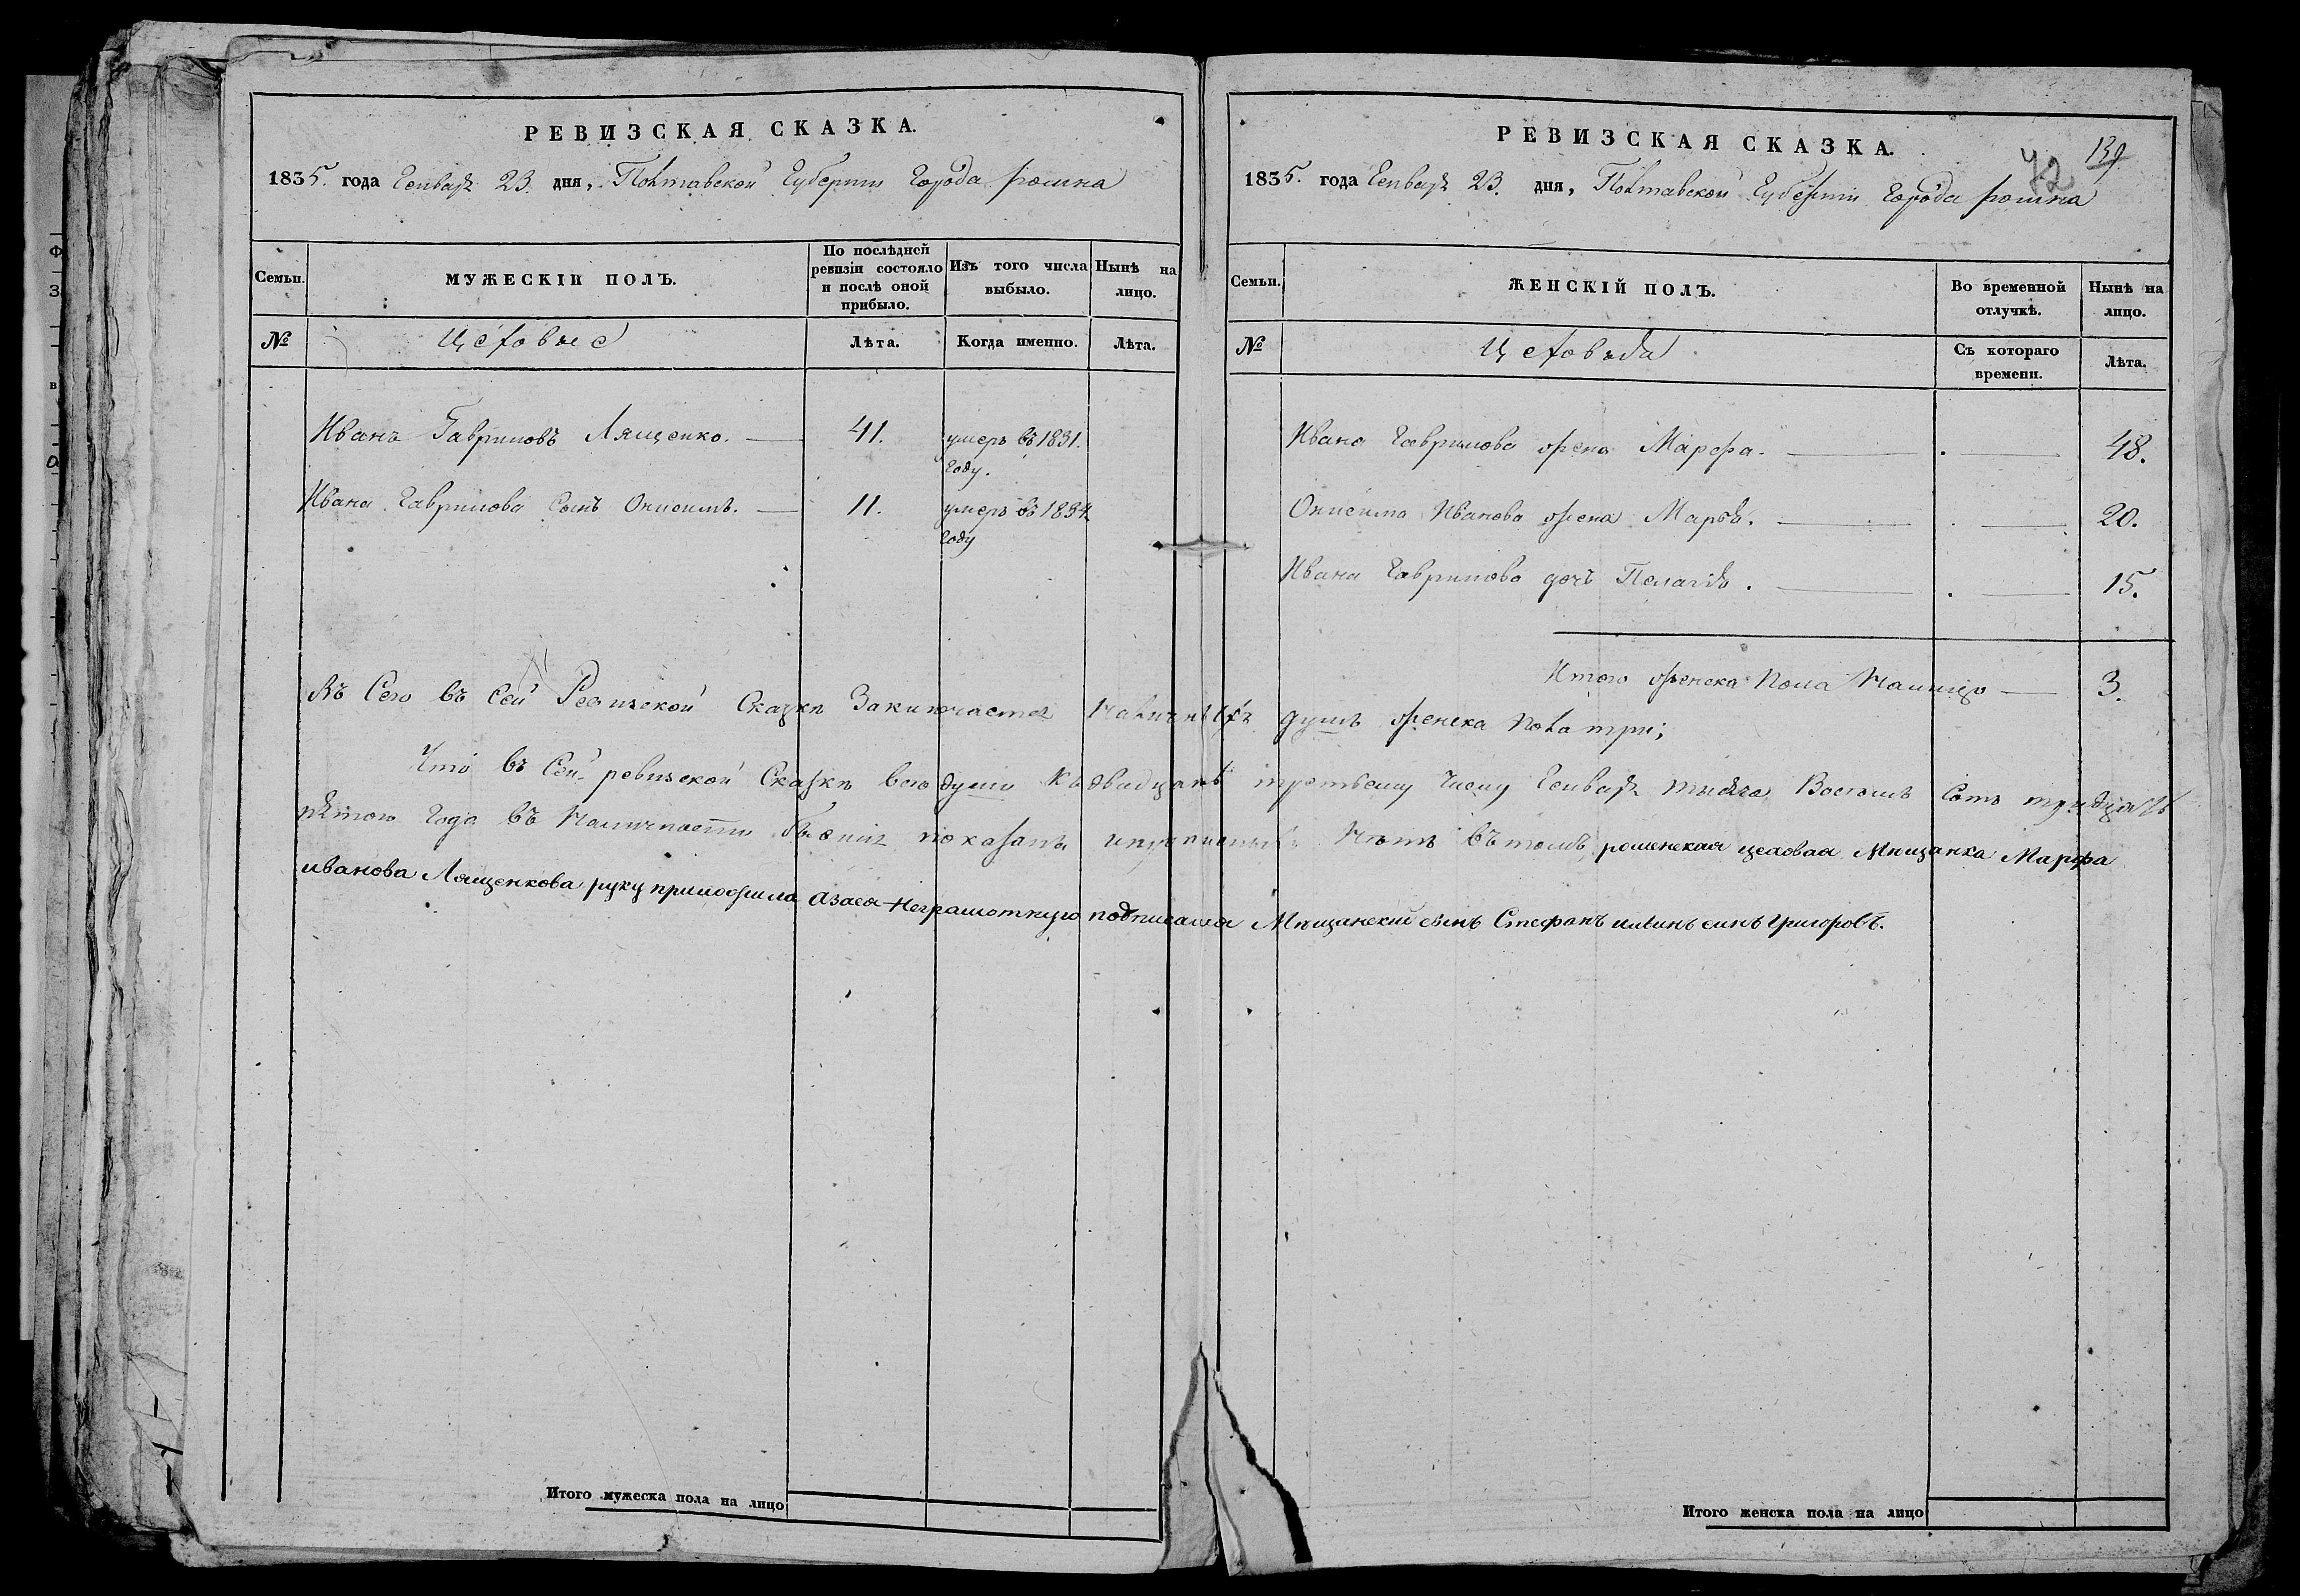 РЕВИЗСКАЯ СКАЗКА.
1835. года Генваря 23. дня, Полтавской Губернии Города ромна
Семьи.
МУЖЕСКІЙ ПОЛЪ.
По послѣдней ревизіи состояло и послѣ оной прибыло.
Изъ того числа выбыло.
Нынѣ на лицо.
№
Цеховые
Лѣта.
Когда именно.
Лѣта.
Иванъ Гавриловъ Лященко. 41. умеръ въ 1831. году.
Ивана Гаврилова сынъ Онисимъ. 11. умеръ въ 1834. году
РЕВИЗСКАЯ СКАЗКА.
139.
72
1835. года Генваря 23. дня, Полтавской Губернии Города ромна
Семьи.
ЖЕНСКІЙ ПОЛЪ.
Во временной отлучкѣ.
Нынѣ на лицо.
№
Цеховыя
Съ котораго времени.
Лѣта.
Ивана Гаврилова жена Марфа. 48.
Онисима Иванова жена Марья. 20.
Ивана Гаврилова дочь Пелагія. 15.
Итого женска пола налицо 3.
Въ Сего въ сей Ревизской Сказкѣ Заключается наличныхъ душъ женска пола три;
Что въ Сей ревизской Сказкѣ всѣ души къ двадцать третьему числу Генваря тысяча Восемь сотъ тридцать
пятого Года въ Наличности показаны Нѣтъ въ томъ роменская цеховая Мещанка Марфа
иванова Лященкова руку приложила азаея Неграмотную подписался Мещанский сынъ Стефанъ сынъ григоровъ.
Итого мужеска пола на лицо
Итого женска пола на лицо